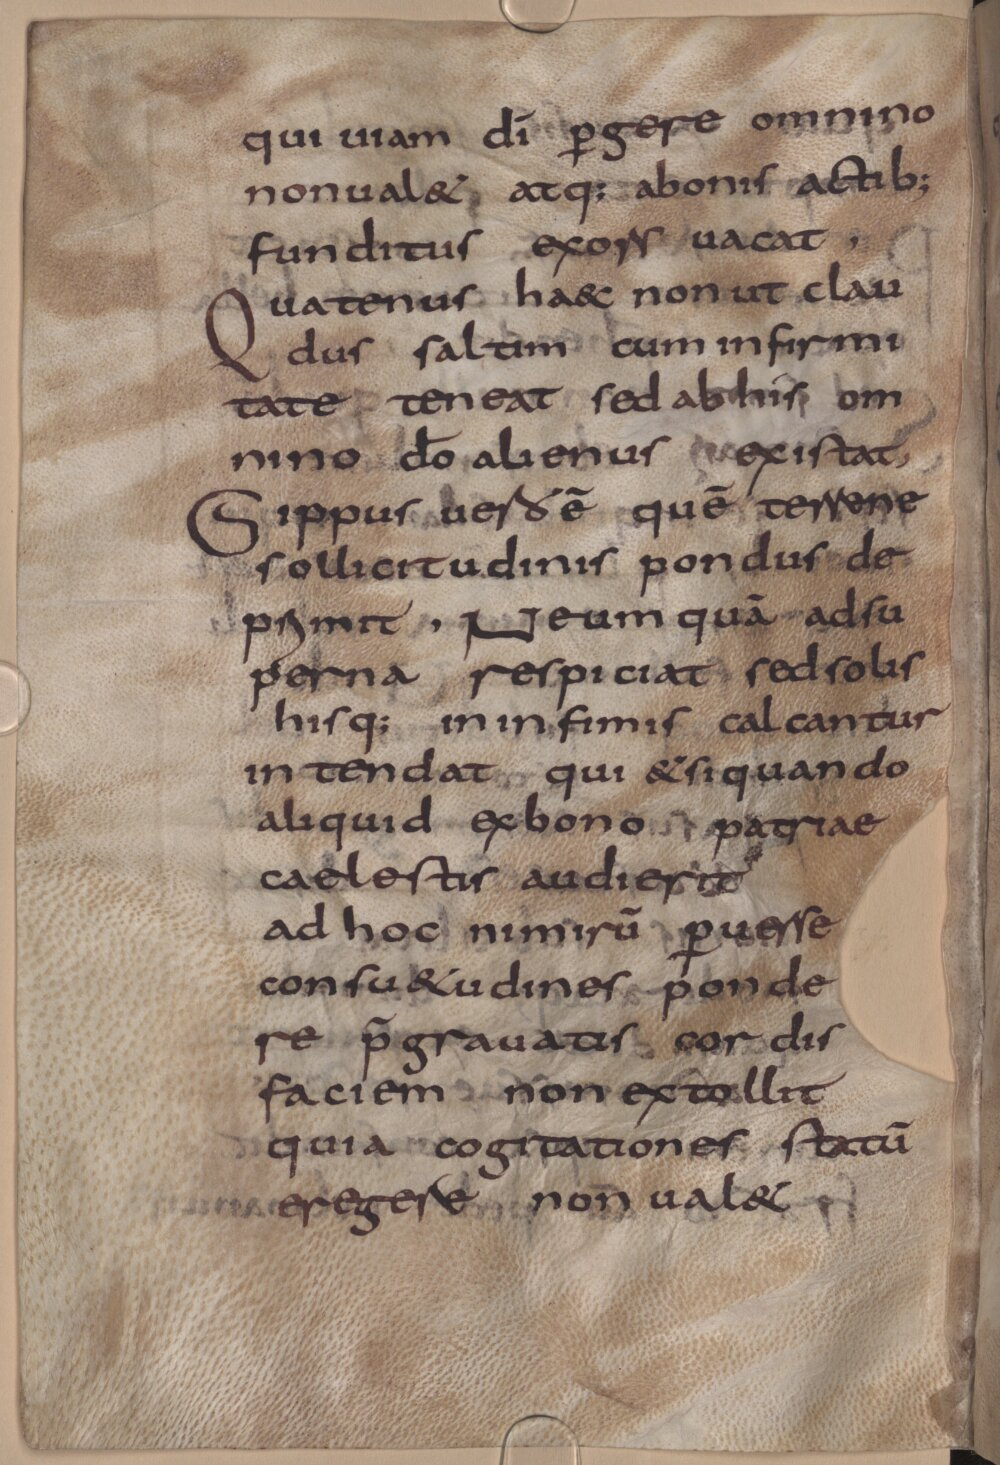 qui uiam dī ꝑgere omnino
non ual& atq; abonis actib;
funditus exors uacat,
Quatenus ha&c non ut clau
dus saltim cum infirmi
tate teneat sed abhis om
nino dō alienus existat,
Gippus uer ÷ quē terrene
sollicitudinis pondus de
prımit, Neumquā adsu
perna respiciat sedsolis
hisq; ininfimis calcantur
intendat qui &siquando
aliquid exbono patriae
caelestis audierit
ad hoc nimirū ꝑuerse
consu&udines ponde
re p̄grauatis cordis
faciem non extollit
quia cogitationes statū
eregere non ual&